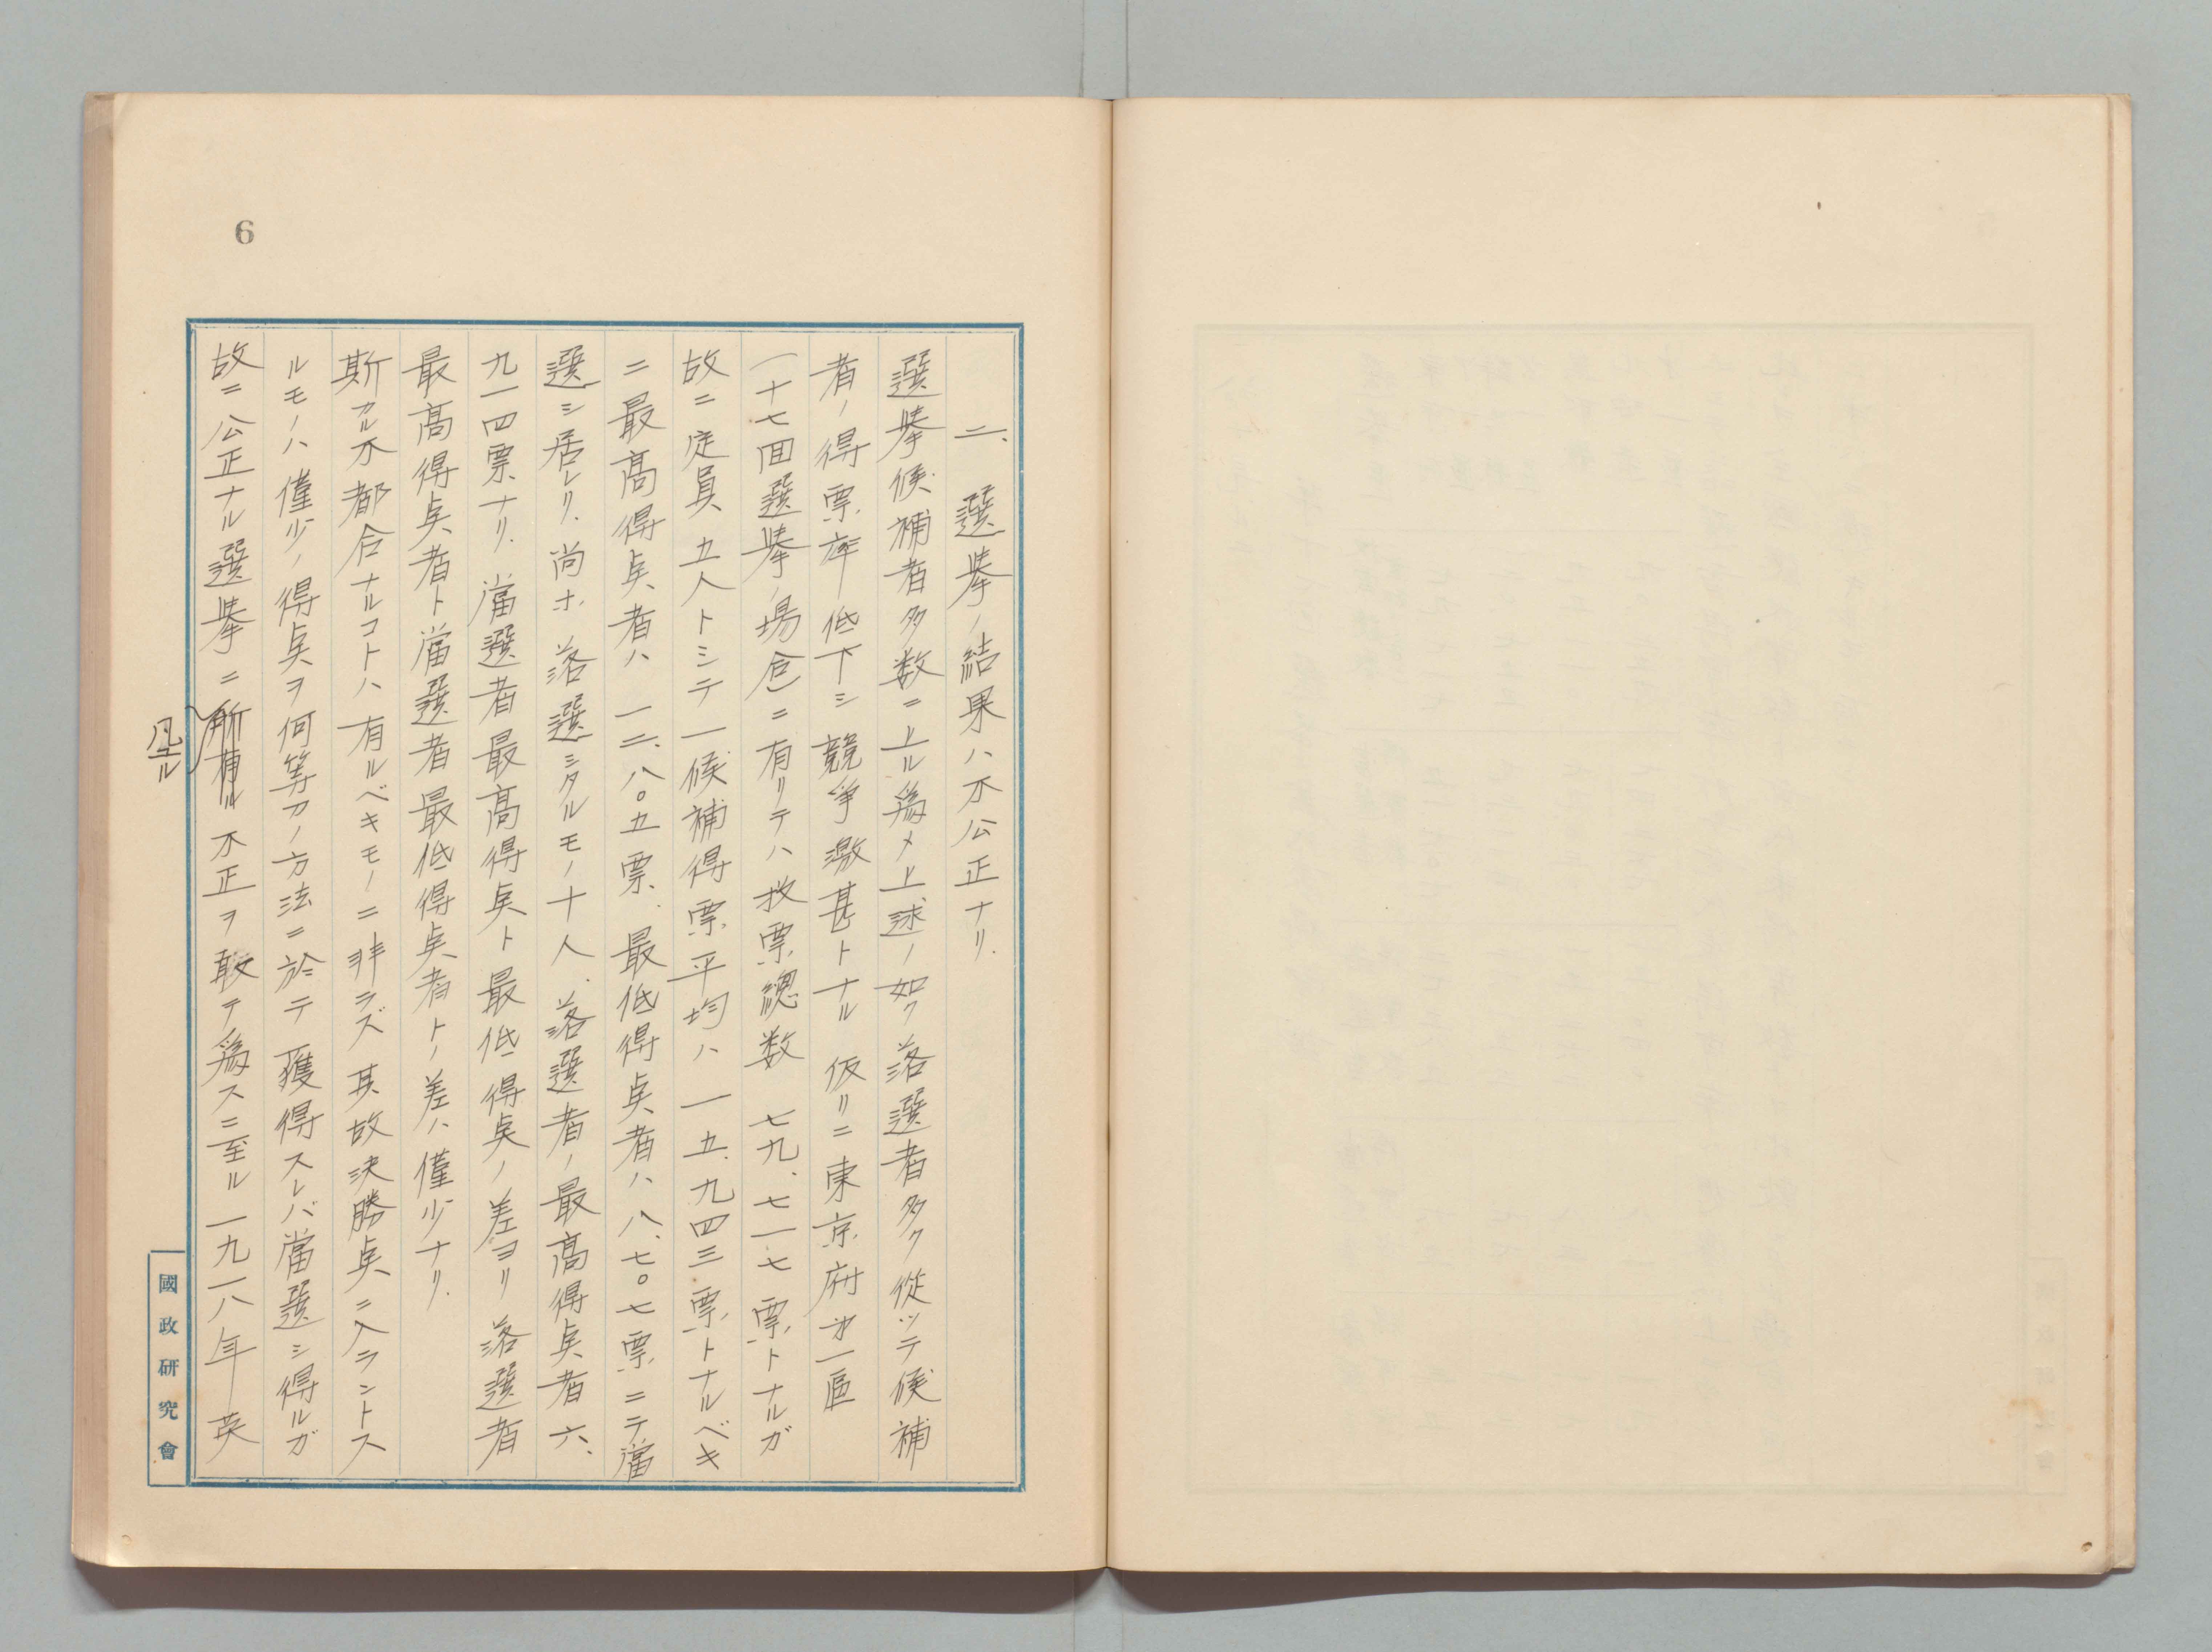 6
二、選擧ノ結果ハ不公正ナリ.
選擧候補者多数ニ上ル爲メ上述ノ如ク落選者多ク從ッテ候補
者ノ得票率低下シ競争激甚トナル 仮リニ東京府㐧一區
(十七回選擧ノ場合)ニ有リテハ投票總数 七九、七一七票トナルガ
故ニ定員五人トシテ一候補得票平均ハ 一五、九四三票トナルベキ
ニ最高得奌者ハ 一二、八〇五票、最低得奌者ハ 八、七〇七票ニテ當
選シ居レリ.尚ホ落選シタルモノ十人.落選者ノ最高得奌者 六、
九一四票ナリ.當選者最高得奌ト最低得奌ノ差ヨリ落選者
最高得奌者ト當選者最低得奌者トノ差ハ僅少ナリ.
斯カル不都合ナルコトハ有ルベキモノニ非ラズ 其故決勝奌ニ入ラントス
ルモノハ僅少ノ得奌ヲ何等カノ方法ニ於テ獲得スレバ當選シ得ルガ
故ニ公正ナル選擧ニ所有ル不正ヲ敢テ爲スニ至ル 一九一八年英
凡ユル
國政研究會